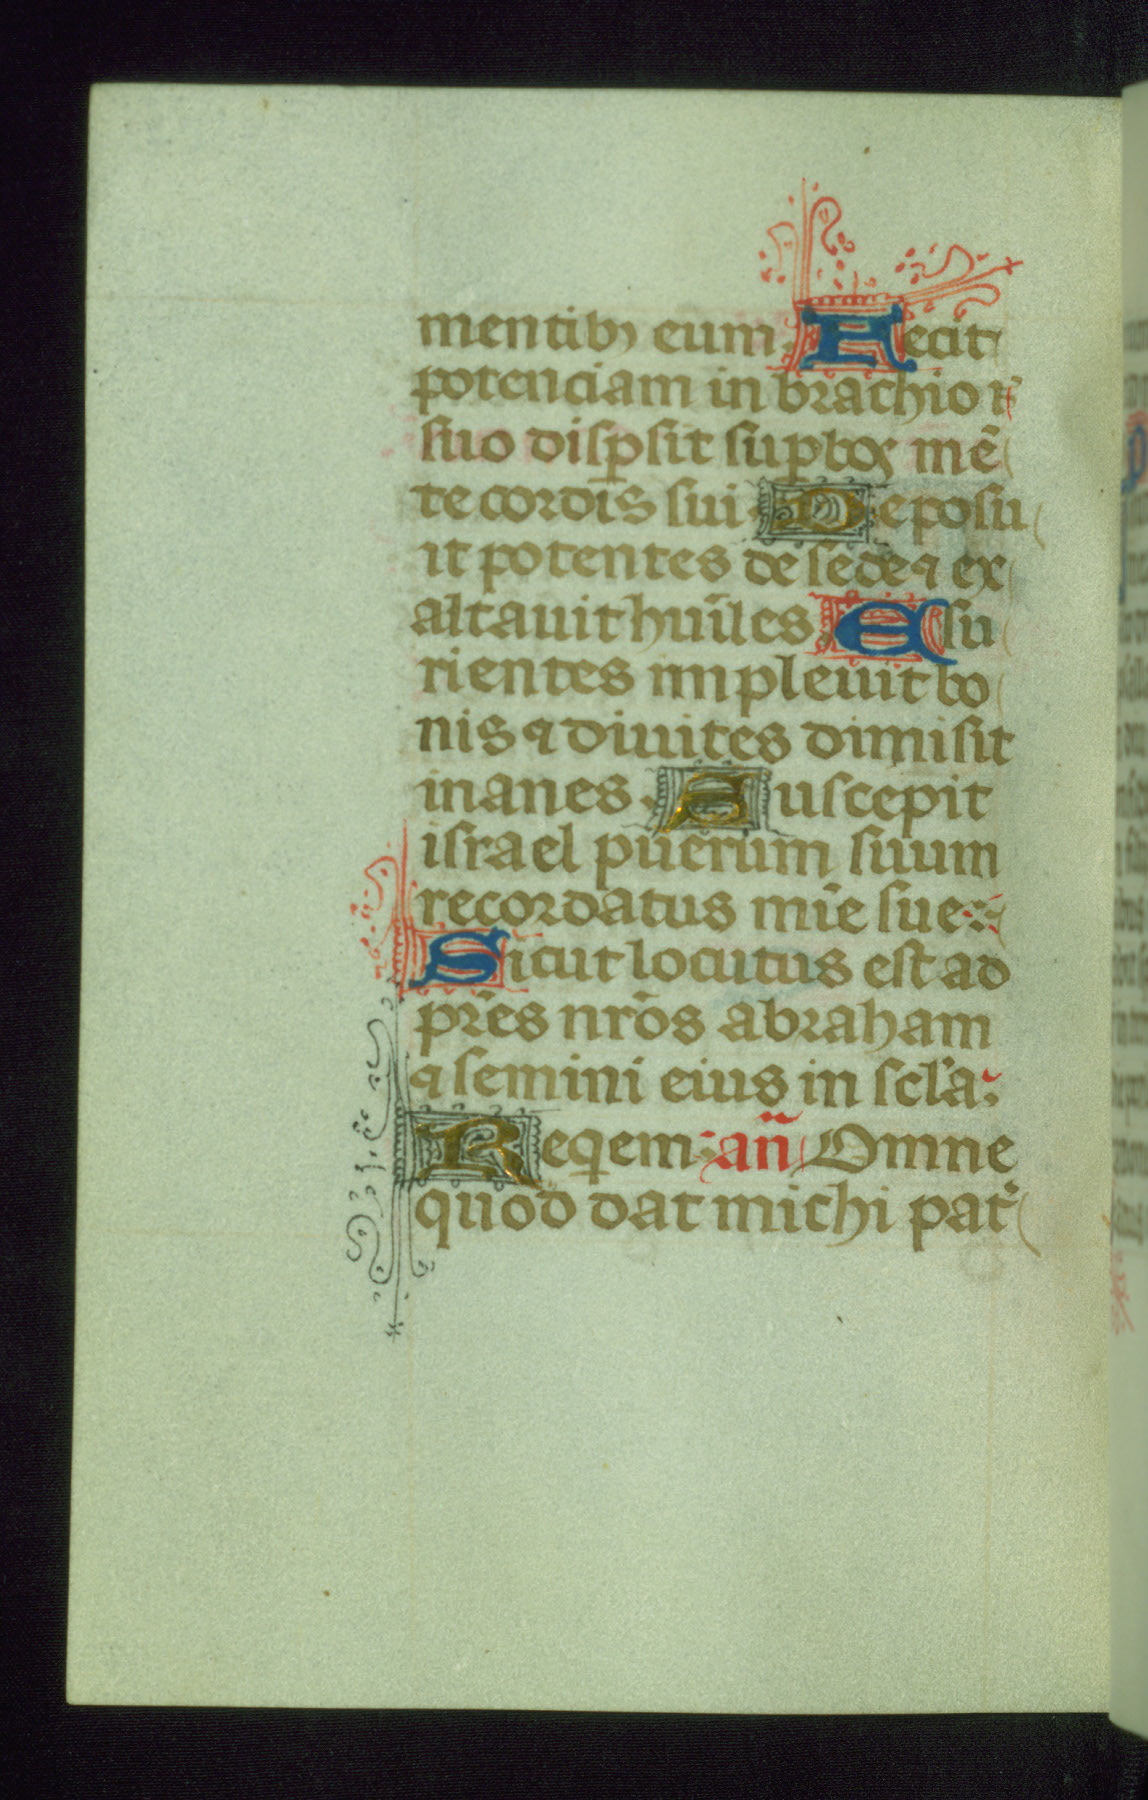 mentibꝫ eum. Fecit
potenciam in brachio
suo dispsit supbos mē
te cordis sui. Deposu
it potentes de sede ⁊ ex
altauit huīles. Esu
rientes impleuit bo
nis ⁊ diuites dimisit
inanes. Suscepit
israel puerum suum
recordatus mīe sue:
Sicut locutus est ad
pr̄es nr̄os abraham
⁊ semini eius in scl̄a.
Reqem: an̄ Omne
quod dat michi pat᷑